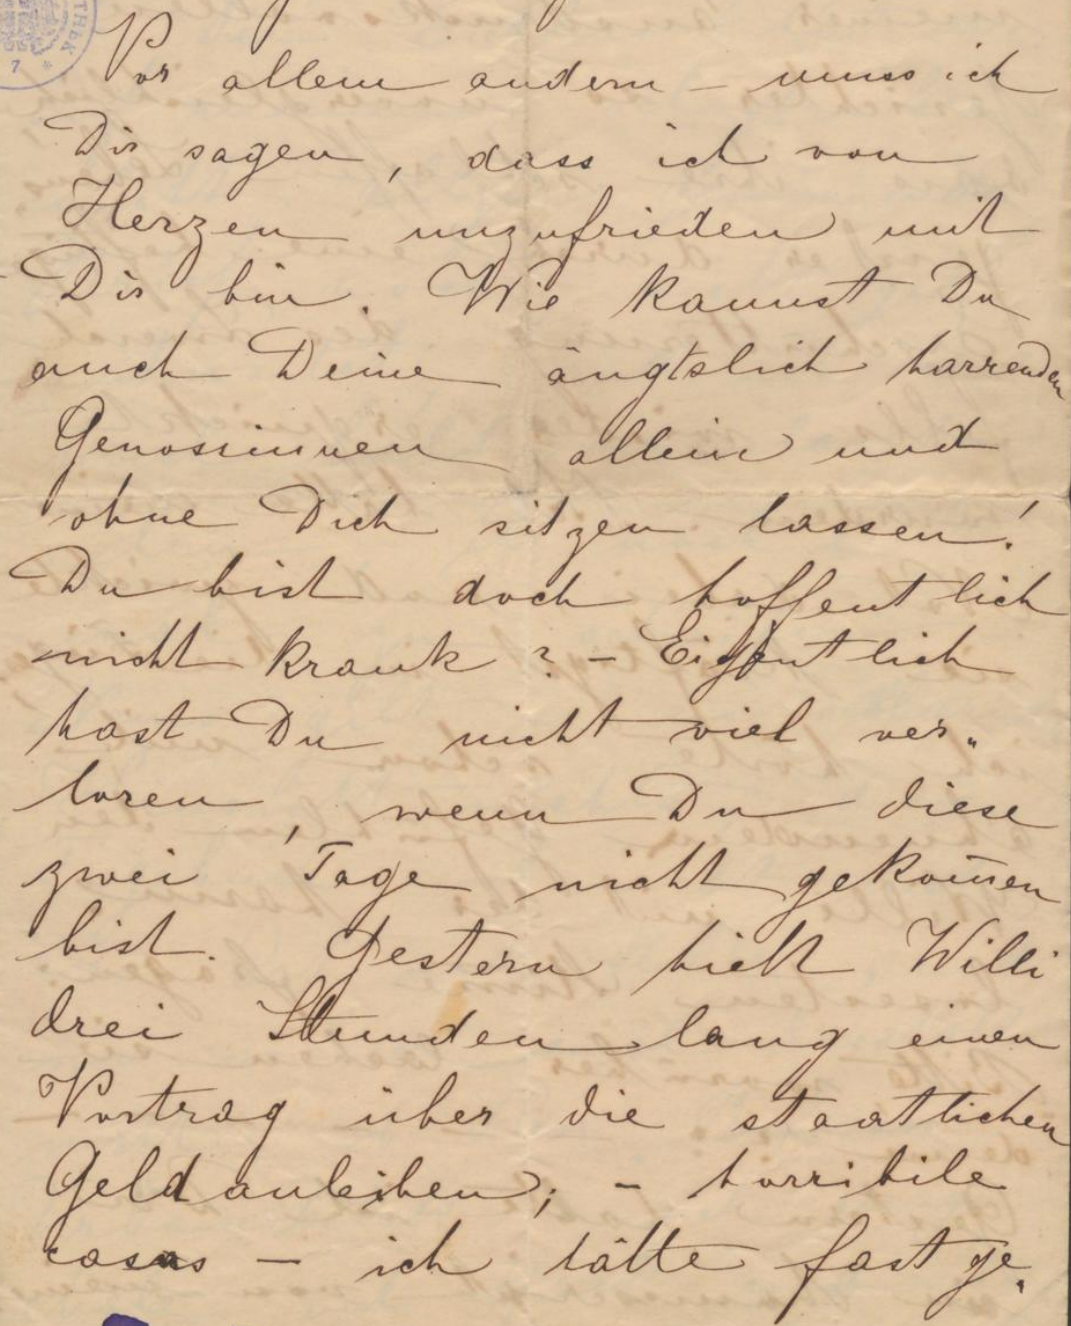 Vor allem andern – muss ich
Dir sagen, dass ich von
Herzen unzufrieden mit
Dir bin. Wie kannst Du
auch Deine ängtslich harrenden
Genossinnen allein und
ohne Dich sitzen lassen!
Du bist doch hoffentlich
nicht krank? – Eigentlich
hast Du nicht viel ver-
loren, wenn Du diese
zwei Tage nicht gekom̅en
bist. Gestern hielt Willi
drei Stunden lang einen
Vortrag über die staatlichen
Geldanleihen; – horribile
casus – ich hätte fast ge-